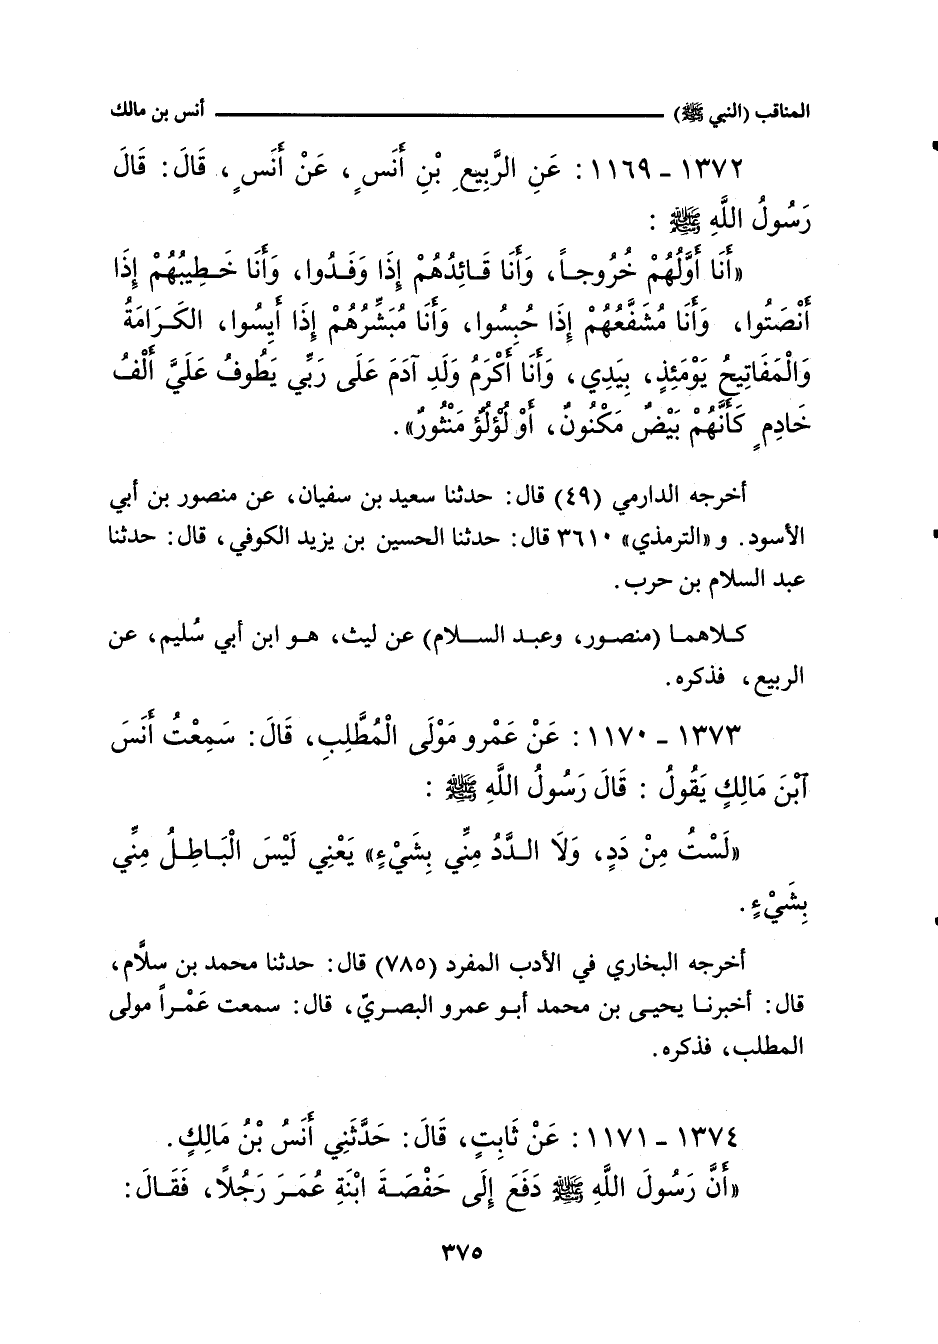 المناقب (النبي ﷺ) ــــــــــــــــــــــــــــــــ أنس بن مالك
١٣٧٢ - ١١٦٩ : عَنِ الرَّبِيعِ بْنِ أَنَسٍ ، عَنْ أَنَسٍ ، قَالَ : قَالَ
رَسُولُ اللَّهِ ﷺ :
«أَنَا أَوَّلُهُمْ خُرُوجاً، وَأَنَا قَائِدُهُمْ إِذَا وَفَدُوا، وَأَنَا خَطِيبُهُمْ إِذَا
أَنْصَتُوا، وَأَنَا مُشَفَّعُهُمْ إِذَا حُبِسُوا، وَأَنَا مُبَشِّرُهُمْ إِذَا أَيِسُوا، الكَرَامَةُ
وَالْمَفَاتِيحُ يَوْمَئِذٍ، بِيَدِي، وَأَنَا أَكْرَمُ وَلَدِ آدَمَ عَلَى رَبِّي يَطُوفُ عَلَيَّ أَلْفُ
خَادِمٍ كَأَنَّهُمْ بَيْضٌ مَكْنُونٌ، أَوْ لُؤْلُؤٌ مَنْثُورٌ» .
أخرجه الدارمي (٤٩) قال : حدثنا سعيد بن سفيان، عن منصور بن أبي
الأسود. و«الترمذي» ٣٦١٠ قال : حدثنا الحسين بن يزيد الكوفي، قال : حدثنا
عبد السلام بن حرب .
كلاهما (منصور، وعبد السلام) عن ليث، هو ابن أبي سُليم، عن
الربيع، فذكره .
١٣٧٣ - ١١٧٠ : عَنْ عَمْرٍو مَوْلَى الْمُطَّلِبِ، قَالَ : سَمِعْتُ أَنَسَ
آبْنَ مَالِكٍ يَقُولُ : قَالَ رَسُولُ اللَّهِ ﷺ :
«لَسْتُ مِنْ دَدٍ، وَلَا الدَّدُ مِنِّي بِشَيْءٍ» يَعْنِي لَيْسَ الْبَاطِلُ مِنِّي
بِشَيْءٍ .
أخرجه البخاري في الأدب المفرد (٧٨٥) قال : حدثنا محمد بن سلَّام،
قال : أخبرنا يحيى بن محمد أبو عمرو البصريّ، قال : سمعت عَمْراً مولى
المطلب، فذكره .
١٣٧٤ - ١١٧١ : عَنْ ثَابِتٍ، قَالَ : حَدَّثَنِي أَنَسُ بْنُ مَالِكٍ .
«أَنَّ رَسُولَ اللَّهِ ﷺ دَفَعَ إِلَى حَفْصَةَ ابْنَةِ عُمَرَ رَجُلًا، فَقَالَ :
٣٧٥